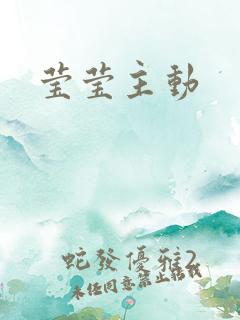 莹莹主動
蛇發優雅2
未任同意禁止轉載